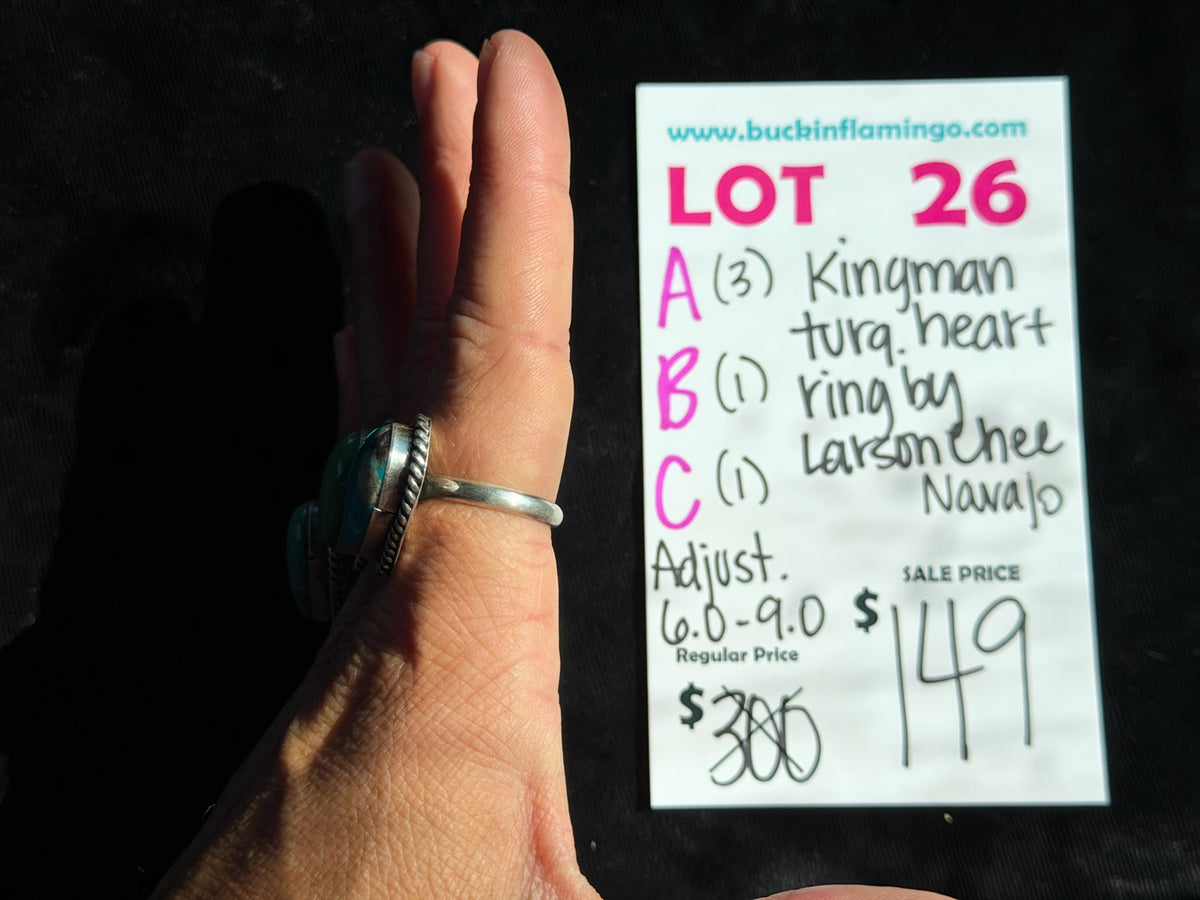 www.buckinflamingo.com
LOT 26
A (3) Kingman
turq. heart
B (1) ring by
Larson Chee
C (1) Navajo
Adjust.
6.0-9.0
SALE PRICE
$149
Regular Price
$300